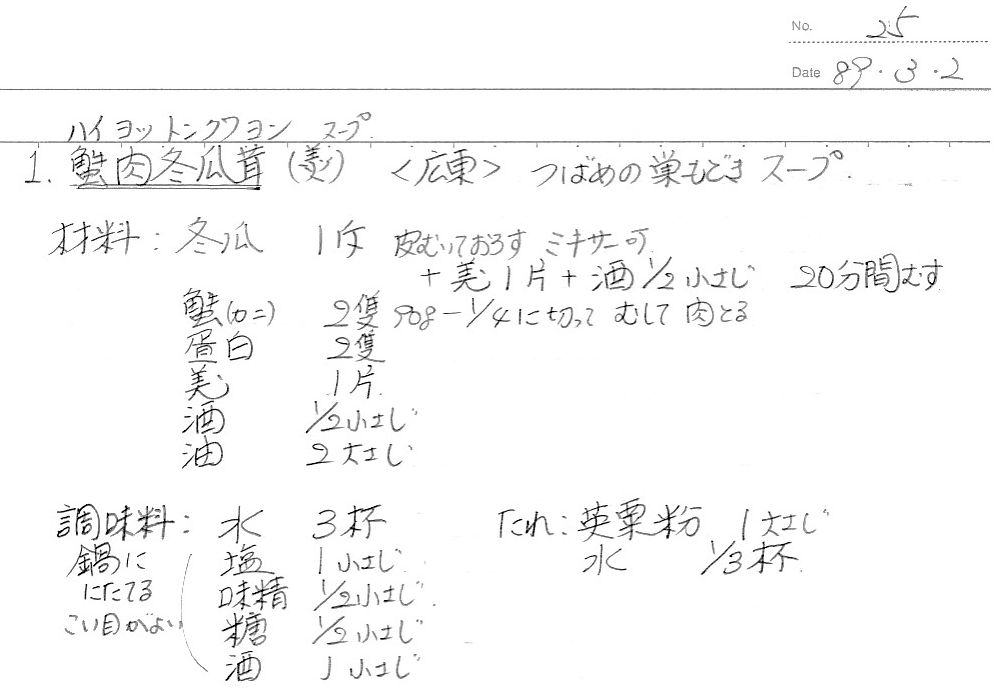 No. 25
Date 89・3・2
ハイヨットンクワヨン スープ.
1. 蟹肉冬瓜茸(羹) <広東> つばめの巣もどきスープ.
材料: 冬瓜 1斤 皮むいておろす ミキサー可
+姜1片+酒1/2小さじ 20分間むす
蟹(カニ) 2隻 90g-1/4に切って むして 肉とる
蛋白 2隻
姜 1片
酒 1/2小さじ
油 2大さじ
調味料: 水 3杯
鍋に 塩 1小さじ
にたてる 味精 1/2小さじ.
こい目がよい 糖 1/2小さじ
酒 1小さじ
たれ: 英粟粉 1大さじ
水 1/3杯.